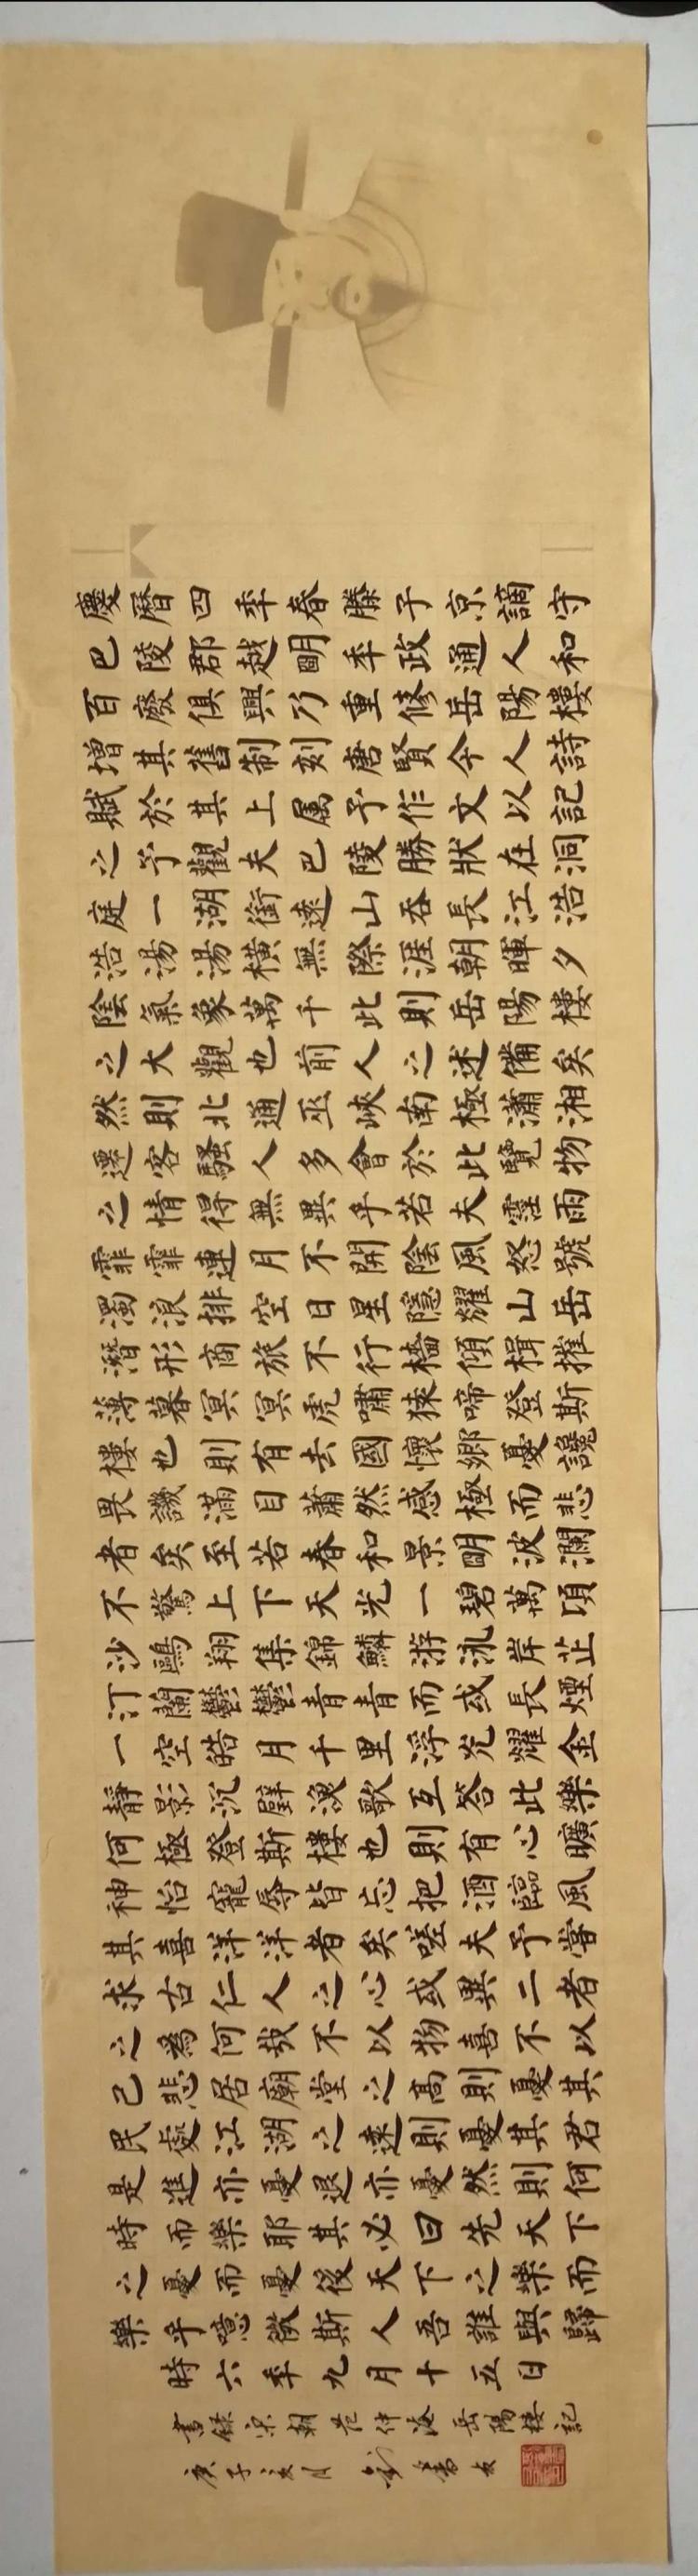 慶曆四年春滕子京謫守
巴陵郡越朙年政通人和
百廢俱興乃重修岳陽樓
增其舊制刻唐賢今人詩
賦於其上属予作文以記
之予觀夫巴陵勝狀在洞
庭一湖銜遠山吞長江浩
浩湯湯橫無際涯朝暉夕
陰氣象萬千此則岳陽樓
之大觀也前人之述備矣
然則北通巫峽南極瀟湘
遷客騷人多會於此覽物
之情得無異乎若夫霪雨
霏霏連月不開陰風怒號
濁浪排空日星隱耀山岳
潛形商旅不行檣傾楫摧
薄暮冥冥虎嘯猿啼登斯
樓也則有去國懷鄉憂讒
畏譏滿目蕭然感極而悲
者矣至若春和景朙波瀾
不驚上下天光一碧萬頃
沙鷗翔集錦鱗游泳岸芷
汀蘭鬱鬱青青而或長煙
一空皓月千里浮光耀金
靜影沉璧漁歌互答此樂
何極登斯樓也則有心曠
神怡寵辱皆忘把酒臨風
其喜洋洋者矣嗟夫予嘗
求古仁人之心或異二者
之為何哉不以物喜不以
己悲居廟堂之高則憂其
民處江湖之遠則憂其君
是進亦憂退亦憂然則何
時而樂耶其必曰先天下
之憂而憂後天下之樂而
樂乎噫微斯人吾誰與歸
時六年九月十五日
書錄宋朝范仲淹岳陽樓記
庚子亥月